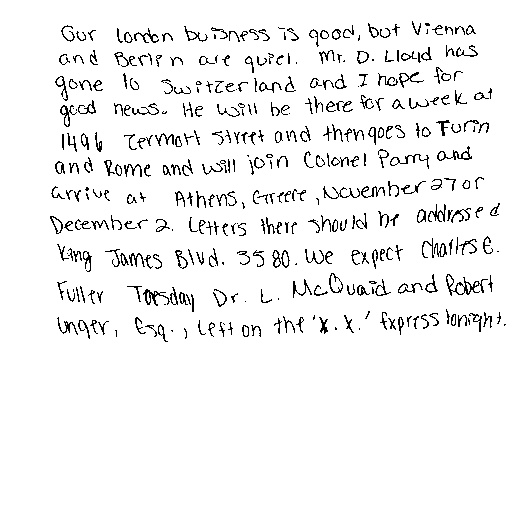 Our london buisness is good, but Vienna
and Berlin are quiet. Mr. D. Lloyd has
gone to Switzerland and I hope for
good news. He will be there for a week at
1496 Zermott Street and then goes to Turin
and Rome and will join Colonel Parry and
arrive at Athens, Greece, November 27 or
December 2. Letters there should be addressed
King James Blvd. 3580. We expect Charles E.
Fuller Tuesday Dr. L. McQuaid and Robert
Unger, Esq., left on the 'X.X.' Express tonight.